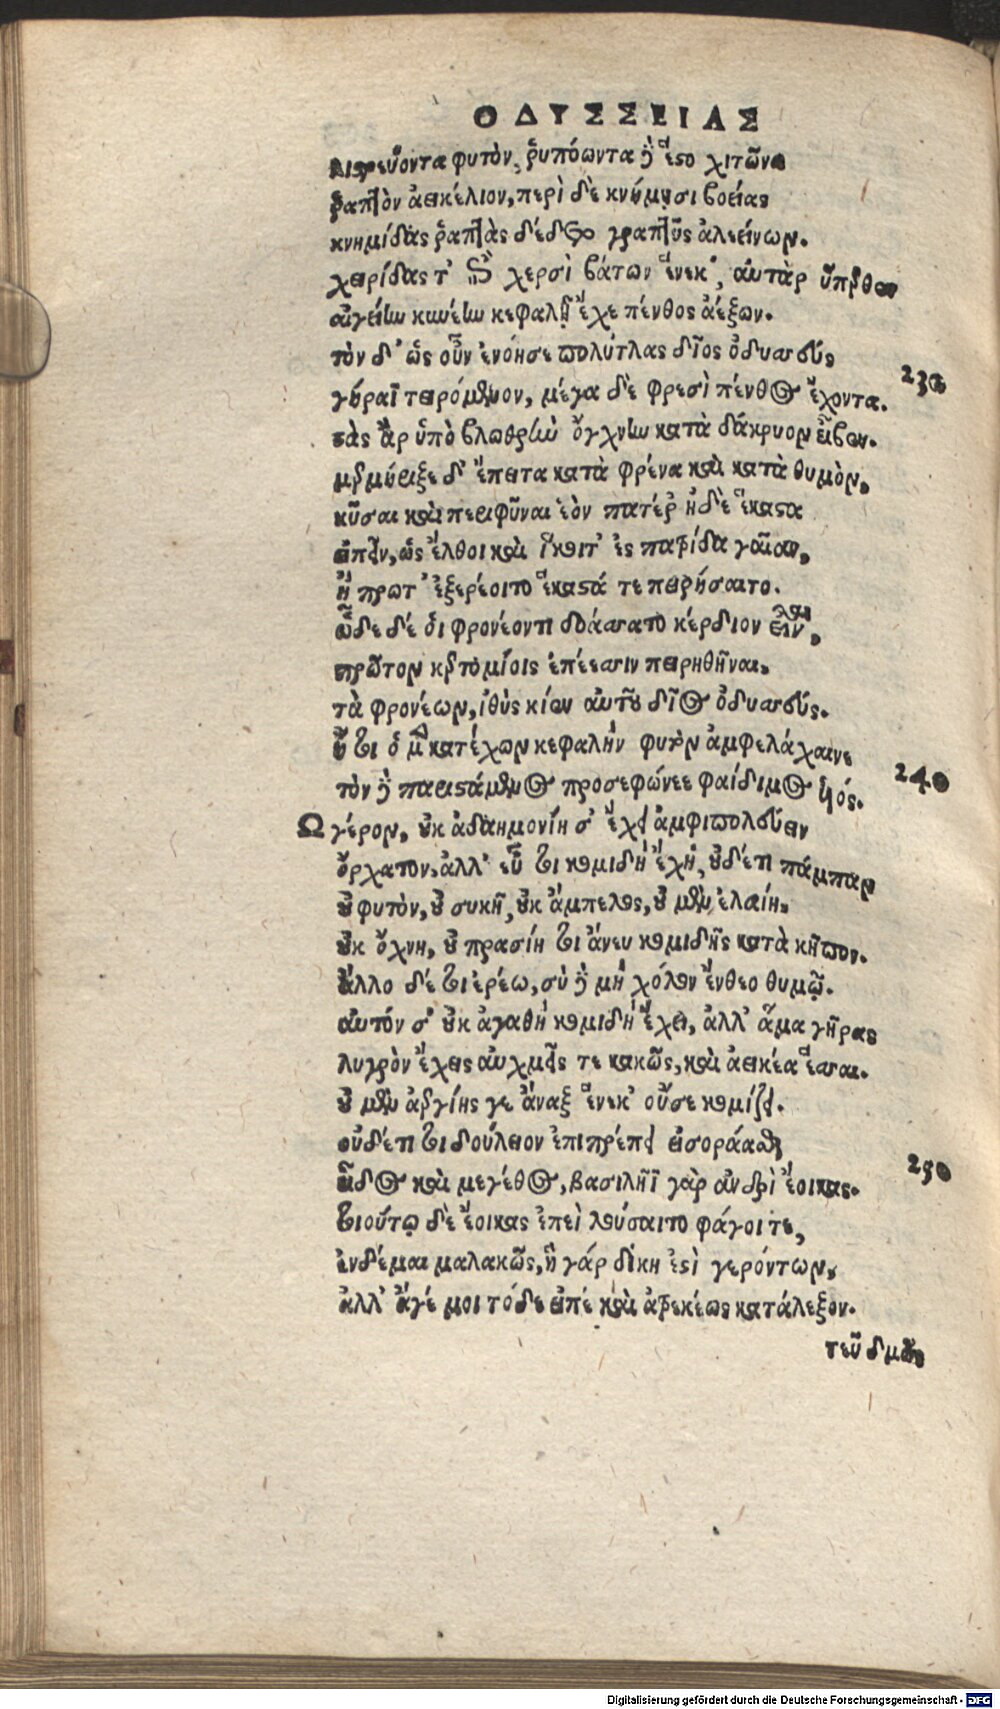 ΟΔΥΣΣΕΙΑΣ
λιστρεύοντα φυτόν, ῥυπόωντα δ̀ ἕστο χιτῶνα
ῥαπτὸν ἀεικέλιον, περὶ δὲ κνήμῃσι βοείας
κνημίδας ῥαπτὰς δέδετο γραπτῦς ἀλεείνων.
χειρίδας τ' ἐπὶ χερσὶ βάτων ἕνεκ', αὐτὰρ ὕπερθεν
αἰγείην κυνέην κεφαλῇ ἔχε πένθος ἀέξων.
τὸν δ' ὡς οὖν ἐνόησε πολύτλας δῖος ὀδυσσεύς
γήραϊ τειρόμενον, μέγα δὲ φρεσὶ πένθος ἔχοντα. 230
στὰς ἄρ ὑπὸ βλωθρὴν ὄγχνην κατὰ δάκρυον εἶβεν.
μερμήριξε δ' ἔπειτα κατὰ φρένα καὶ κατὰ θυμὸν,
κῦσαι καὶ περιφῦναι ἑὸν πατέρ' ἠδὲ ἕκαστα
εἰπεῖν, ὡς ἔλθοι καὶ ἵκοιτ' ἐς πατρίδα γαῖαν,
ἦ πρωτ' ἐξερέοιτο ἕκαστά τε πειρήσαιτο.
ὧδε δέ οἱ φρονέοντι δοάσσατο κέρδιον εἶναι,
πρῶτον κερτομίοις ἐπέεσσιν πειρηθῆναι.
τὰ φρονέων, ἰθὺς κίεν αὐτοῦ δῖος ὀδυσσεύς.
ἤτοι ὁ μὲν κατέχων κεφαλὴν φυτὸν ἀμφελάχαινε
τὸν δὲ παριστάμενος προσεφώνεε φαίδιμος ὑιός. 240
Ω γέρον, οὐκ ἀδαημονίη σ' ἔχει ἀμφιπολεύειν
ὄρχατον, ἀλλ' εὖ τοι κομιδὴ ἔχει, οὐδέ τι πάμπαν
οὐ φυτὸν, οὐ συκῆ, οὐκ ἄμπελος, οὐ μὲν ἐλαίη,
οὐκ ὄχνη, οὐ πρασίη τοι ἄνευ κομιδῆς κατὰ κῆπον.
ἄλλο δέ τοι ἐρέω, σὺ δὲ μὴ χόλον ἔνθεο θυμῷ.
αὐτόν σ' οὐκ ἀγαθὴ κομιδὴ ἔχει, ἀλλ' ἅμα γῆρας
λυγρὸν ἔχεις αὐχμεῖς τε κακῶς, καὶ ἀεικέα ἕσσαι.
οὐ μὲν ἀεργίης γε ἄναξ ἕνεκ' οὔσε κομίζει.
οὐδέ τι τοι δούλειον ἐπιπρέπει εἰσοράασθαι
εἶδος καὶ μεγέθος, βασιλῆϊ γὰρ ἀνδρὶ ἔοικας. 250
τοιούτῳ δὲ ἔοικας ἐπεὶ λούσαιτο φάγοι τε,
ἑνδέμαι μαλακῶς, ἡ γάρ δίκη ἐστὶ γερόντων,
ἀλλ' ἄγέ μοι τόδε εἰπέ καὶ ἀτρεκέως κατάλεξον.
τεῦ δμὼς
Digitalisierung gefördert durch die Deutsche Forschungsgemeinschaft - DFG